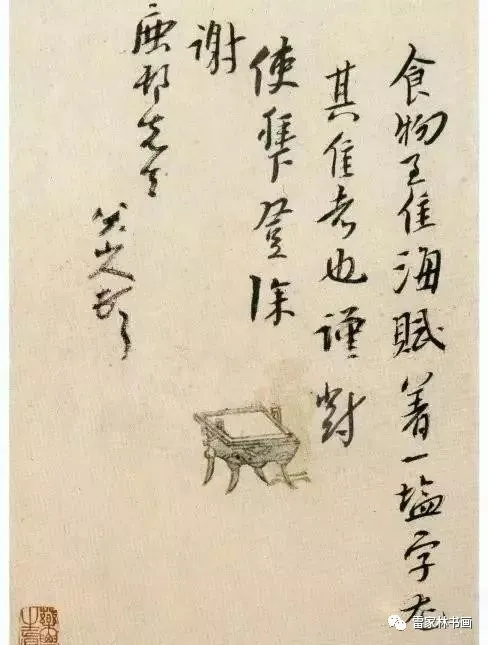 食物至佳海賦着一塩字尤
其佳者也謹對
使拜登涂
謝
鹿邨先生
八大山人
雷家林书画